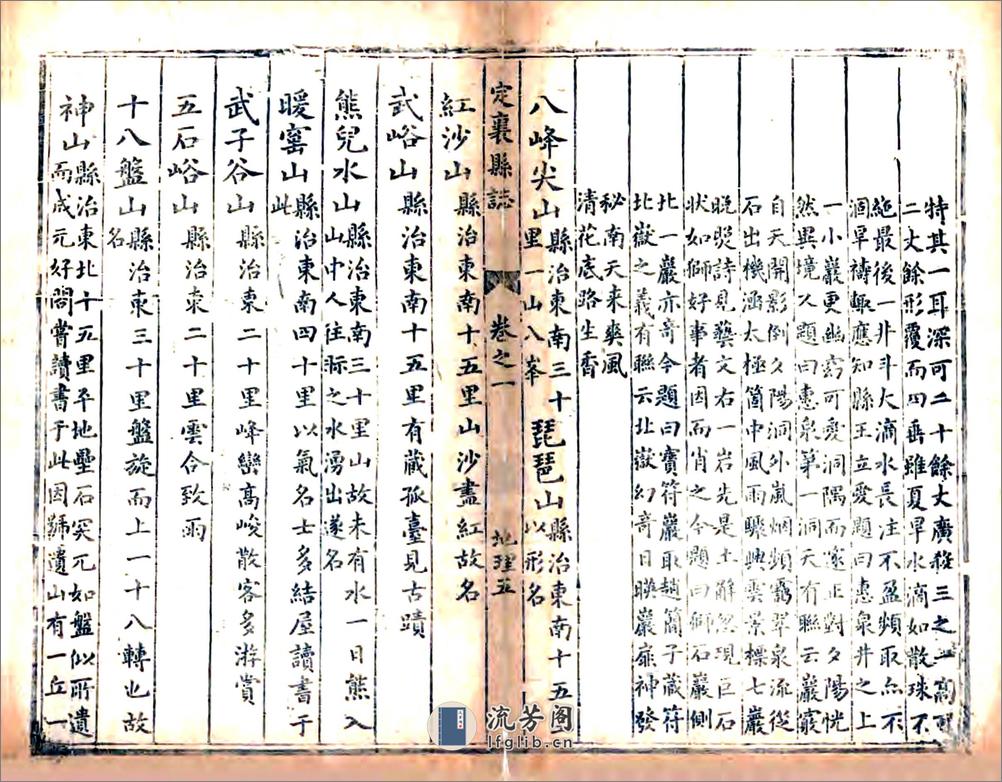 特其一耳深可二十餘丈廣殺三之一高可
二丈餘形覆而四垂雖夏旱水滴如散珠不
絶最後一井斗大滴水長注不盈頻取亦不
涸旱禱輒應知縣王立愛題曰惠泉井之上
一小巖更幽窈可愛洞隅而邃正對夕陽恍
然異境人題曰惠泉第一洞天有聯云巖竅
自天開影倒夕陽洞外嵐烟頻靄翠泉流從
石出機涵太極箇中風雨驟興雲景標七巖
晚照詩見藝文右一岩先是土解忽現巨石
狀如獅好事者因而肖之今題曰獅石巖側
北一巖亦奇今題曰寶符巖取趙簡子藏符
北嶽之義有聯云北嶽幻奇日暎巖扉神發
秘南天來爽風
清花底路生香
八峰尖山縣治東南三十里一山八峯 琵琶山縣治東南十五里以形名
定襄縣誌 卷之一 地理五
紅沙山縣治東南十五里山沙盡紅故名
武峪山縣治東南十五里有藏孤臺見古蹟
熊兒水山縣治東南三十里山故未有水一日熊入
山中人往𣃁之水湧出遂名
暖窰山縣治東南四十里以氣名士多結屋讀書于
此
武子谷山縣治東二十里峰巒高峻散客多游賞
五石峪山縣治東二十里雲合致雨
十八盤山縣治東三十里盤旋而上一十八轉也故
名
神山縣治東北十五里平地壘石突兀如盤似所遺
而成元好問嘗讀書于此因號遺山有一丘一
流芳阁
lfglib.cn